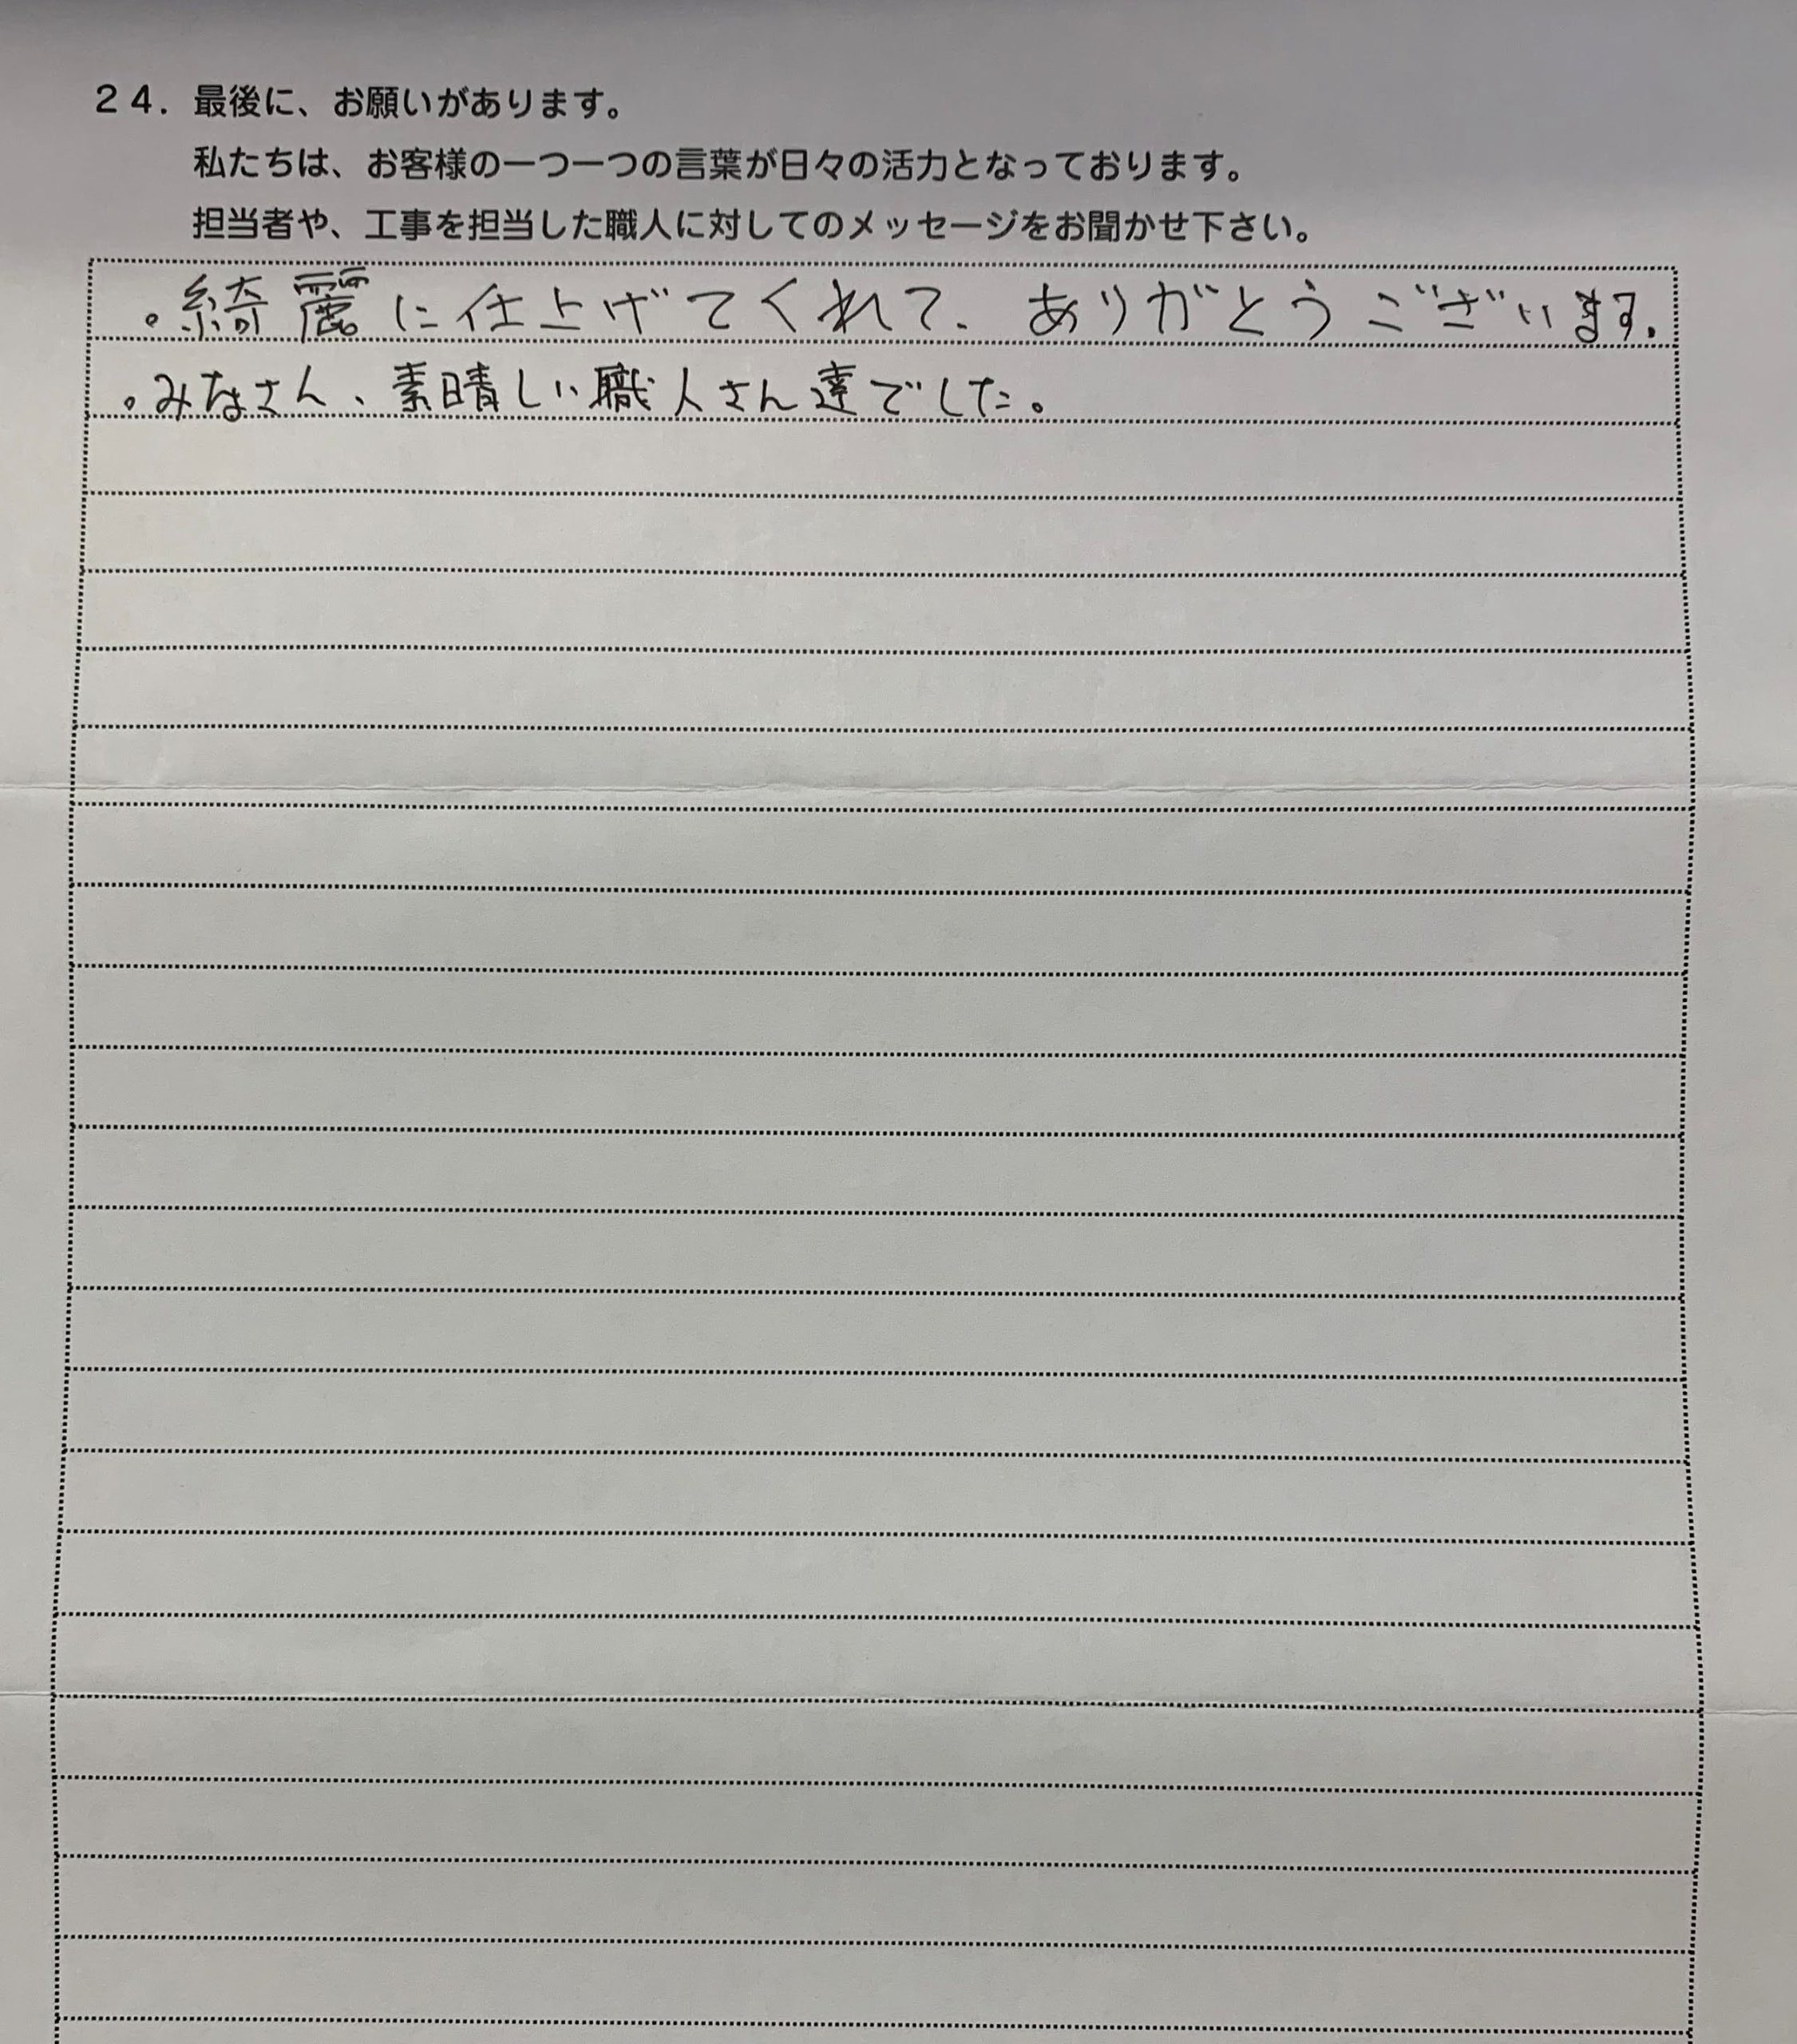 ２４．最後に、お願いがあります。
私たちは、お客様の一つ一つの言葉が日々の活力となっております。
担当者や、工事を担当した職人に対してのメッセージをお聞かせ下さい。
。綺麗に仕上げてくれて、ありがとうございます。
。みなさん、素晴しい職人さん達でした。